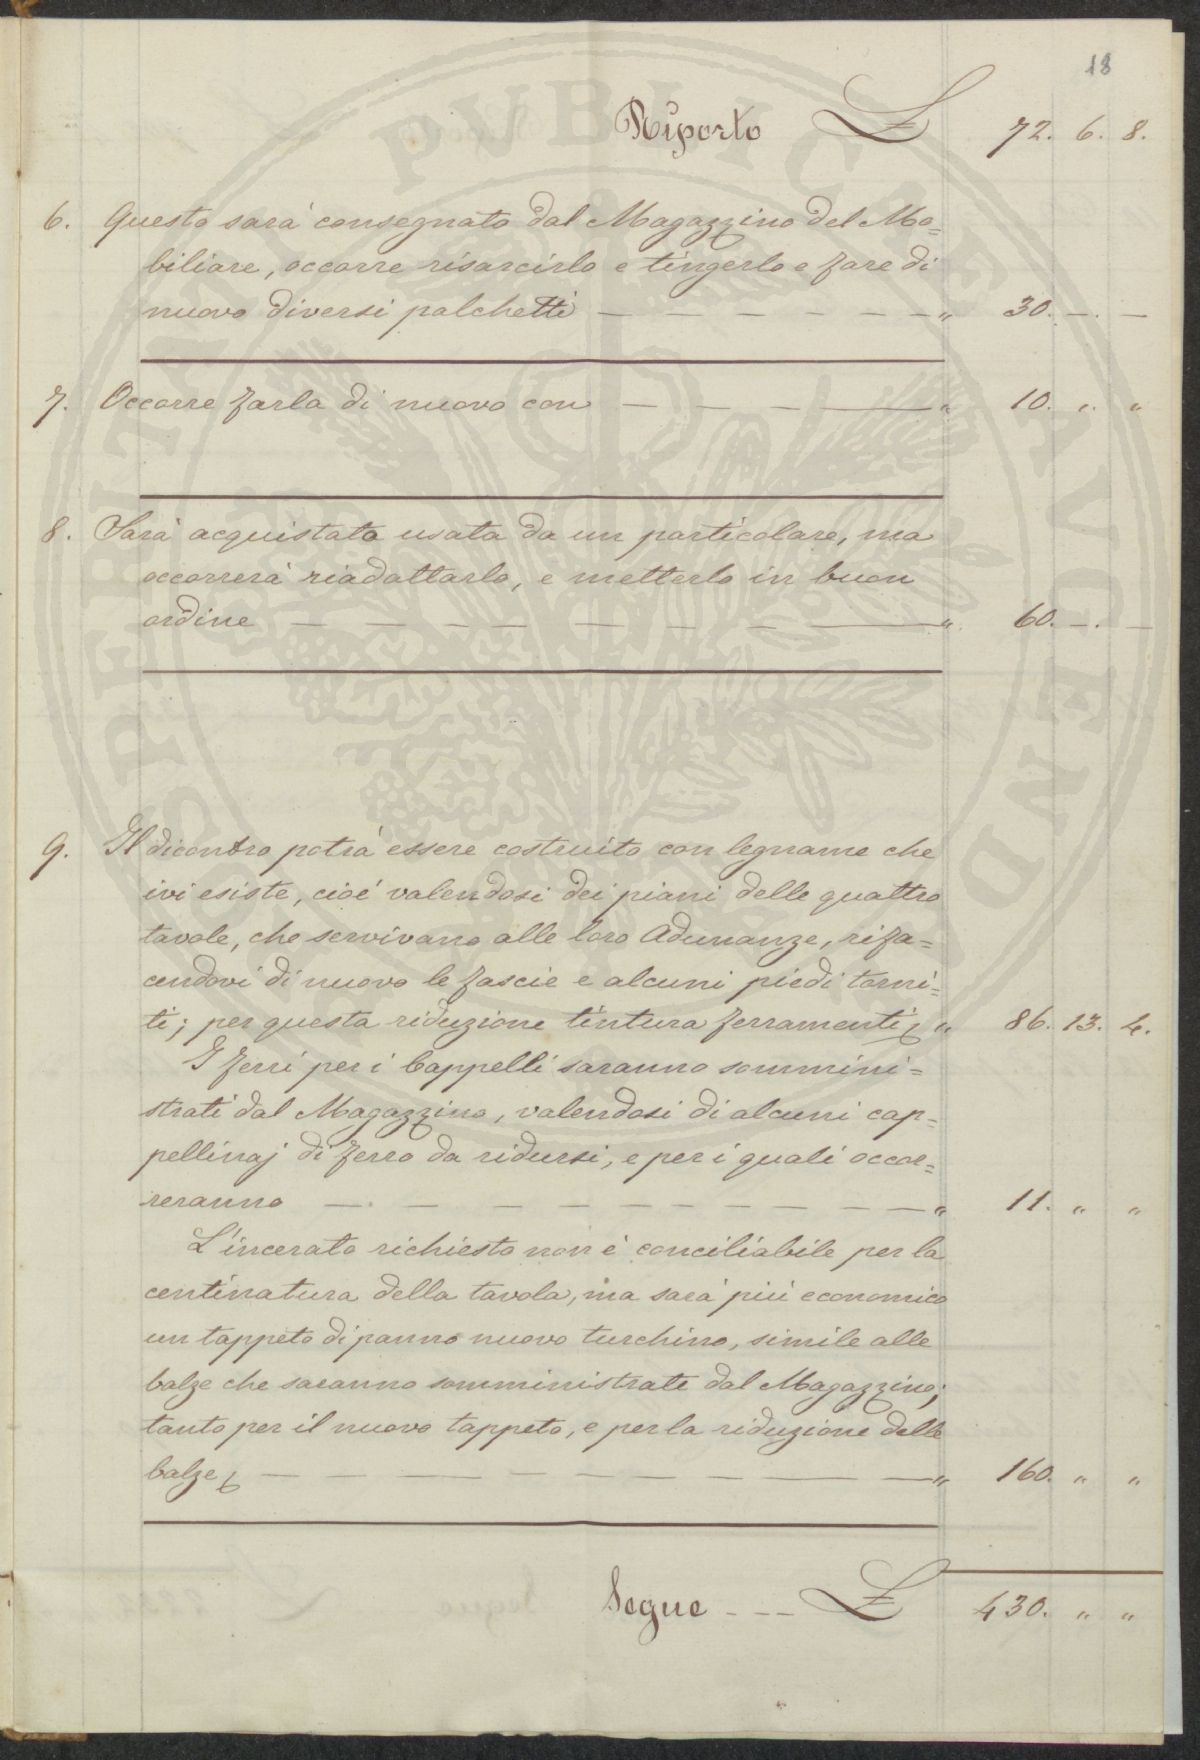 18
Riporto £ 72. 6. 8.
6. Questo sarà consegnato dal Magazzino del Mo=
biliare, occorre risarcirlo e tingerlo e fare di
nuovo diversi palchetti — — — — — — — " 30. —. —
7. Occorre farla di nuovo con — — — — " 10. " "
8. Sarà acquistata usata da un particolare, ma
occorrerà riadattarlo, e metterlo in buon
ordine — — — — — — — — " 60. —. —
9. Il dicontro potrà essere costruito con legname che
ivi esiste, cioè valendosi dei piani delle quattro
tavole, che servivano alle loro Adunanze, rifa=
cendovi di nuovo le fascie e alcuni piedi torni=
ti; per questa riduzione tintura ferramenti " 86. 13. 4.
I ferri per i Cappelli saranno sommini=
strati dal Magazzino, valendosi di alcuni cap=
pellinaj di ferro da ridursi, e per i quali occor=
reranno — — — — — — — — — — " 11. " "
L'incerato richiesto non è conciliabile per la
centinatura della tavola, ma sarà più economico
un tappeto di panno nuovo turchino, simile alle
balze che saranno somministrate dal Magazzino;
tanto per il nuovo tappeto, e per la riduzione delle
balze — — — — — — — — " 160. " "
Segue - - - £ 430. " "
PVBLICAE AVGENDAE
PROSPERITATI